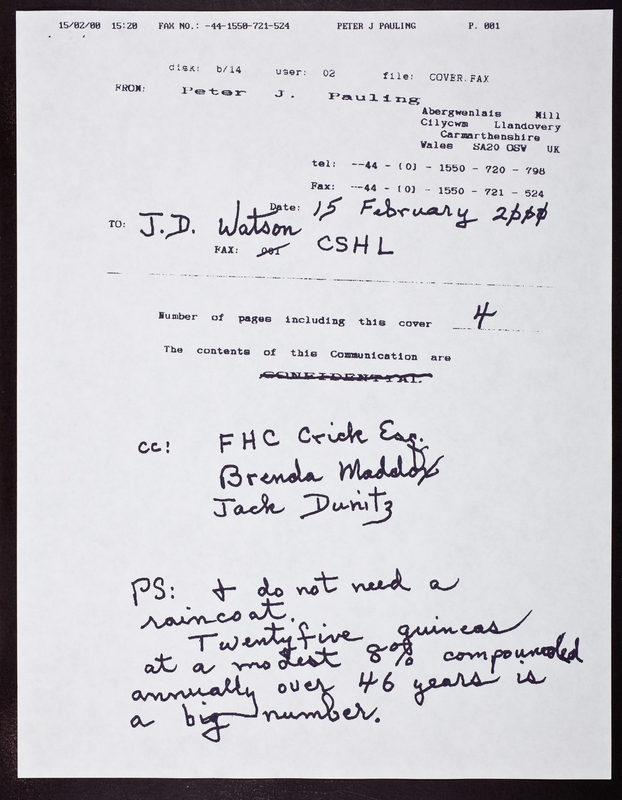 15/02/00 15:20 FAX NO.: -44-1550-721-524 PETER J PAULING P. 001
disk: b/14 user: 02 file: COVER.FAX
FROM: Peter J. Pauling
Abergwenlais Mill
Cilycwm Llandovery
Carmarthenshire
Wales SA20 0SW UK
tel: --44 - (0) - 1550 - 720 - 798
Fax: --44 - (0) - 1550 - 721 - 524
Date: 15 February 2000
TO: J.D. Watson
FAX: 001 CSHL
Number of pages including this cover 4
The contents of this Communication are
CONFIDENTIAL.
cc: FHC Crick Esq.
Brenda Maddox
Jack Dunitz
PS: I do not need a
raincoat.
Twentyfive guineas
at a modest 8% compounded
annually over 46 years is
a big number.